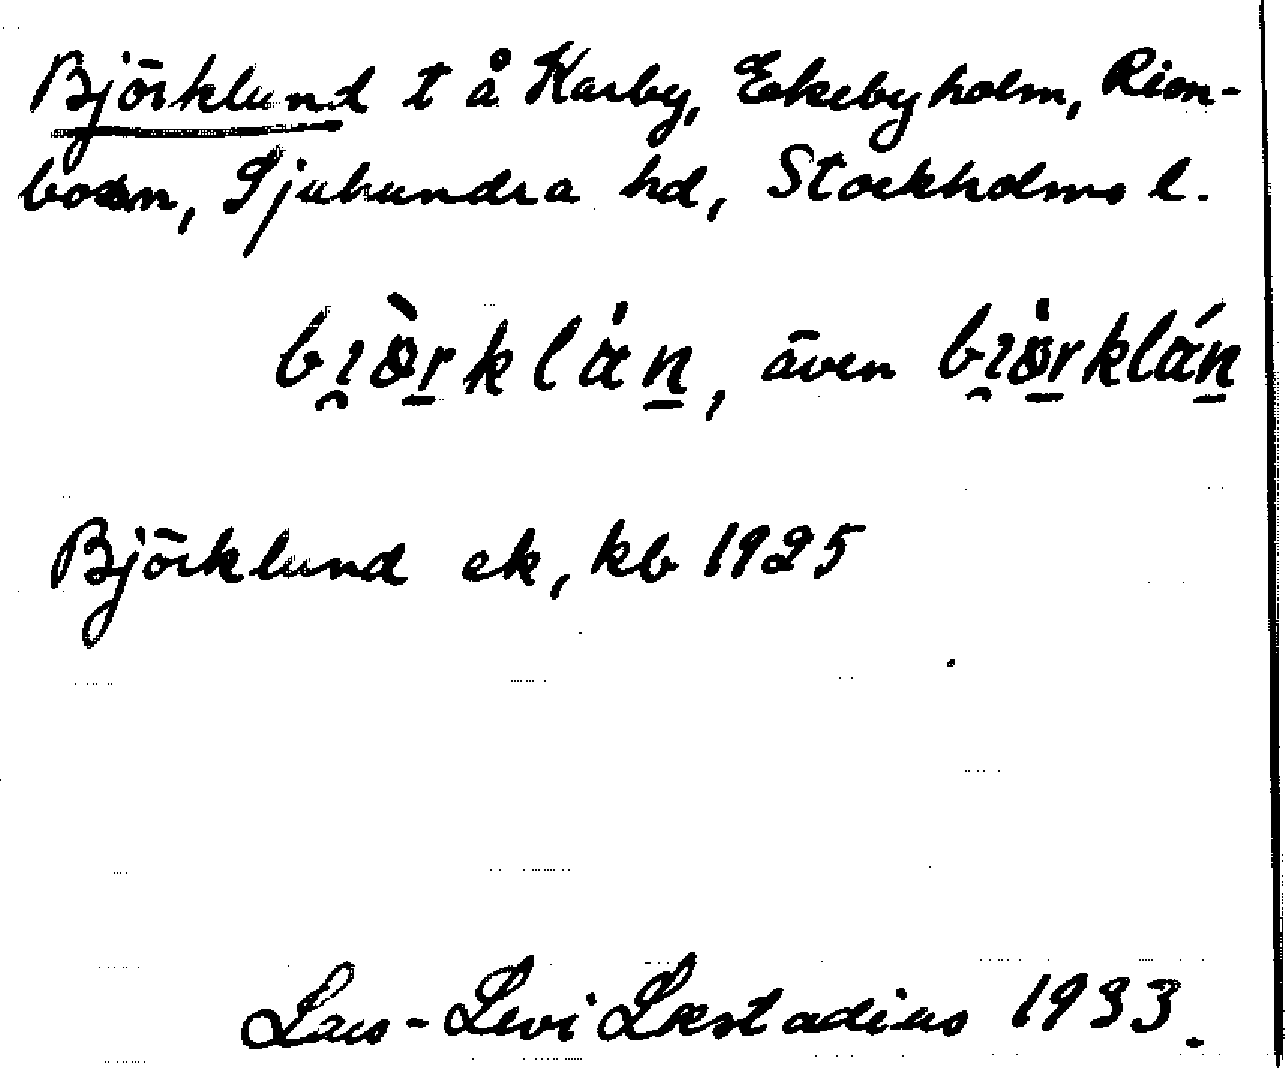 Björklund t å Karby, Eskebyholm, Rim-
boåsn, Sjuhundra hd, Stockholms l.
bı̯ö̀r̲klån̲, även bı̯ör̲klán̲
Björklund ek, kb 1925
Lars-Levi Læstadius 1933.